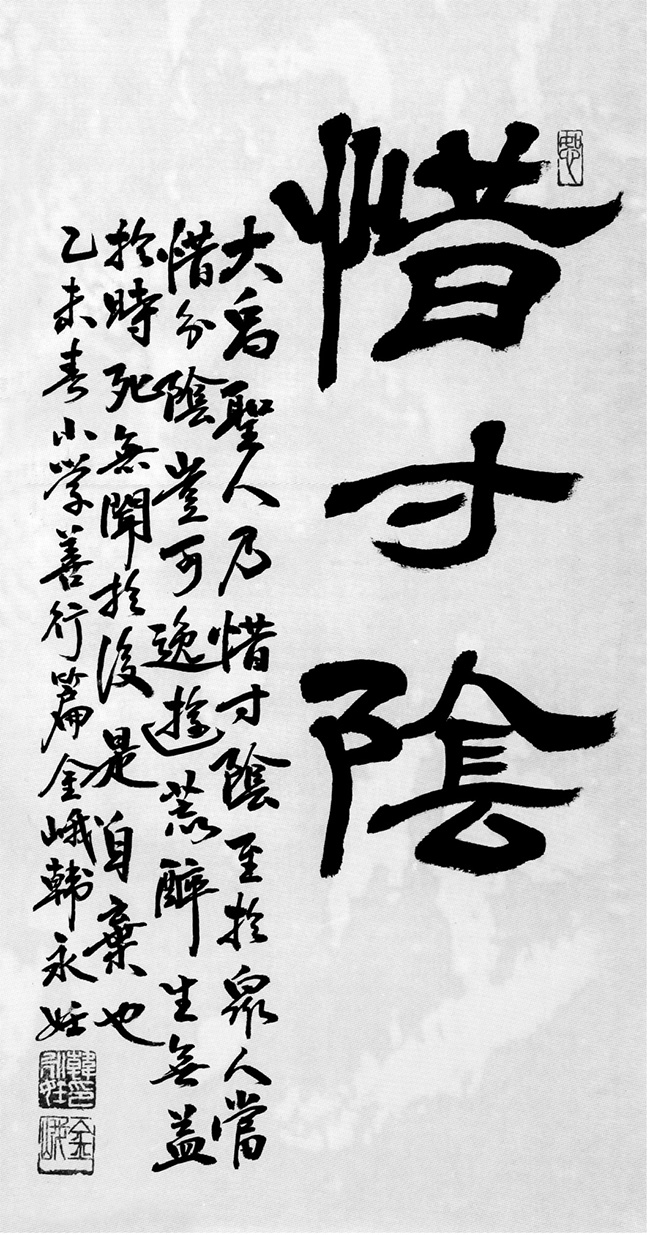 惜寸陰
大禹聖人乃惜寸陰至於衆人當
惜分陰豈可逸遊荒醉生無益
於時死無聞於後是自棄也
乙未春小学善行篇金峨韩永姃
金峨